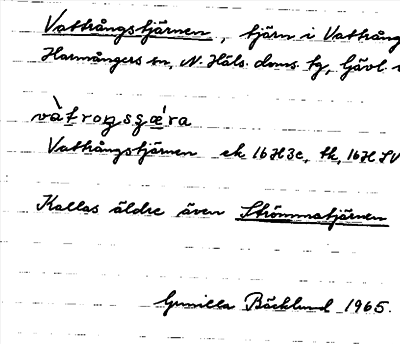 Vattrångstjärnen, tjärn i Vattrång
Harmångers sn, N. Häls. doms. tg, Gävl.
vàtroŋsɕæ̀ra
Vattrångstjärnen ek 16H3c, tk, 16H SV
Kallas äldre även Strömmatjärnen
Gunilla Bäcklund 1965.